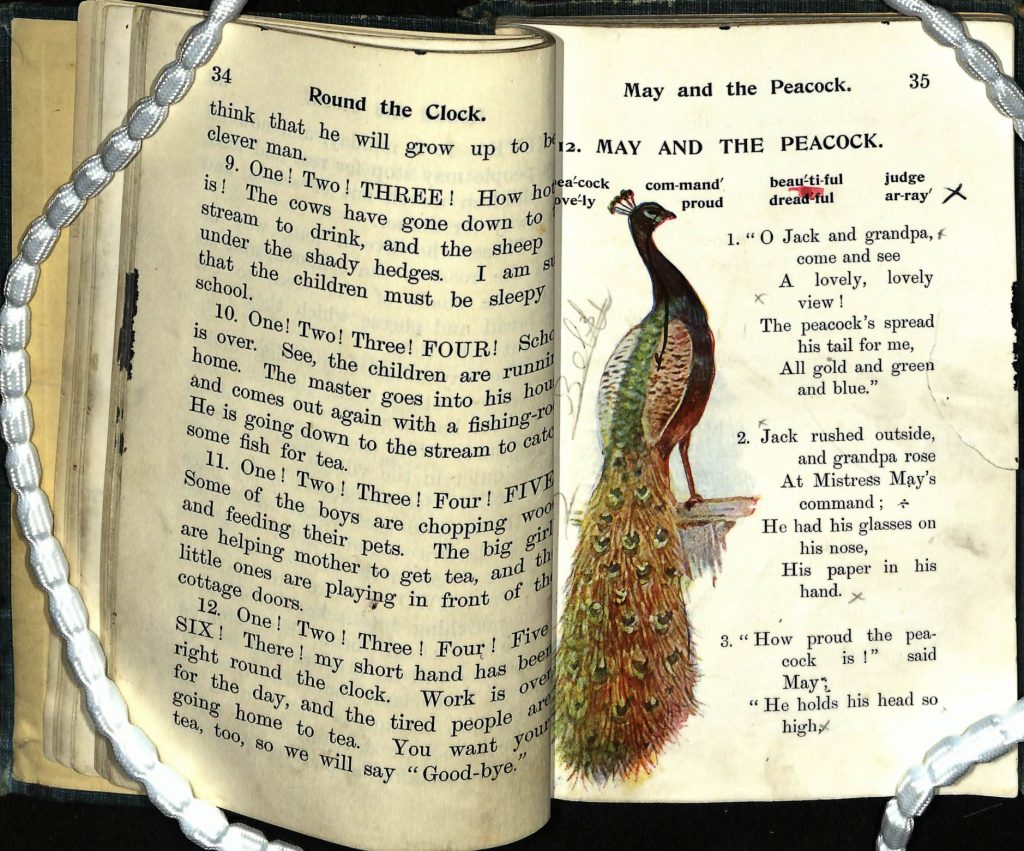 34
Round the Clock.
think that he will grow up to be
clever man.
9. One! Two! THREE! How hot
is! The cows have gone down to
stream to drink, and the sheep
under the shady hedges. I am
that the children must be sleepy
school.
10. One! Two! Three! FOUR!
is over. See, the children are
home. The master goes into his
and comes out again with a
He is going down to the stream to
some fish for tea.
11. One! Two! Three! Four! FIVE
Some of the boys are chopping
and feeding their pets. The big
are helping mother to get tea, and
little ones are playing in front of
cottage doors.
12. One! Two! Three! Four! Five
SIX! There! my short hand has been
right round the clock. Work is over
for the day, and the tired people are
going home to tea. You want your
tea, too, so we will say "Good-bye."
May and the Peacock. 35
12. MAY AND THE PEACOCK.
ea´-cock com-mand´ beau´-ti-ful judge
ove´-ly proud dread´-ful ar-ray´
1. "O Jack and grandpa,
come and see
A lovely, lovely
view!
The peacock's spread
his tail for me,
All gold and green
and blue."
2. Jack rushed outside,
and grandpa rose
At Mistress May's
command;
He had his glasses on
his nose,
His paper in his
hand.
3. "How proud the pea-
cock is!" said
May;
"He holds his head so
high,